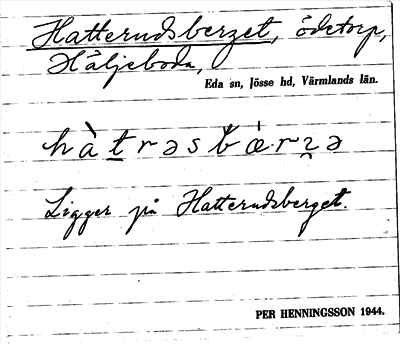 Hatterudsberget, ödetorp,
Häljeboda,
Eda sn, Jösse hd, Värmlands län.
hàt̲rəsbǽrʒ̯ə
Ligger på Hatterudsberget.
PER HENNINGSSON 1944.